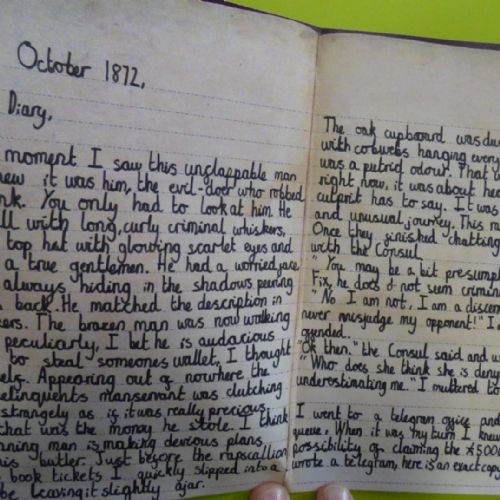 October 1872,
Diary,
moment I saw this unclappable man
it was him, the evil-doer who robbed
You only had to look at him. He
with long, curly criminal whiskers,
top hat with glowing scarlet eyes and
a true gentlemen. He had a worried face
always hiding in the shadows peering
back. He matched the description in
The brazen man was now walking
peculiarly, I bet he is audacious
to steal someones wallet, I thought
Appearing out of nowhere the
manservant was clutching
strangely as if it was really precious
that was the money he stole. I think
man is making devious plans
butler. Just before the rapscallion
book tickets I quickly slipped into a
leaving it slightly ajar.
The oak cupboard was
with cobwebs hanging
was a putrid odour. That
right now, it was about
culprit has to say. It was
and unusual journey. This
Once they finished chatting
with the Consul.
"You may be a bit
Fix, he does not seem
"No I am not, I am a
never misjudge my opponent!" I
offended.
"Ok then." the Consul said and
"Who does she think she is
underestimating me." I muttered to
I went to a telegram office and
queue. When it was my turn I knew
possibility of claiming the
wrote a telegram, here is an exact